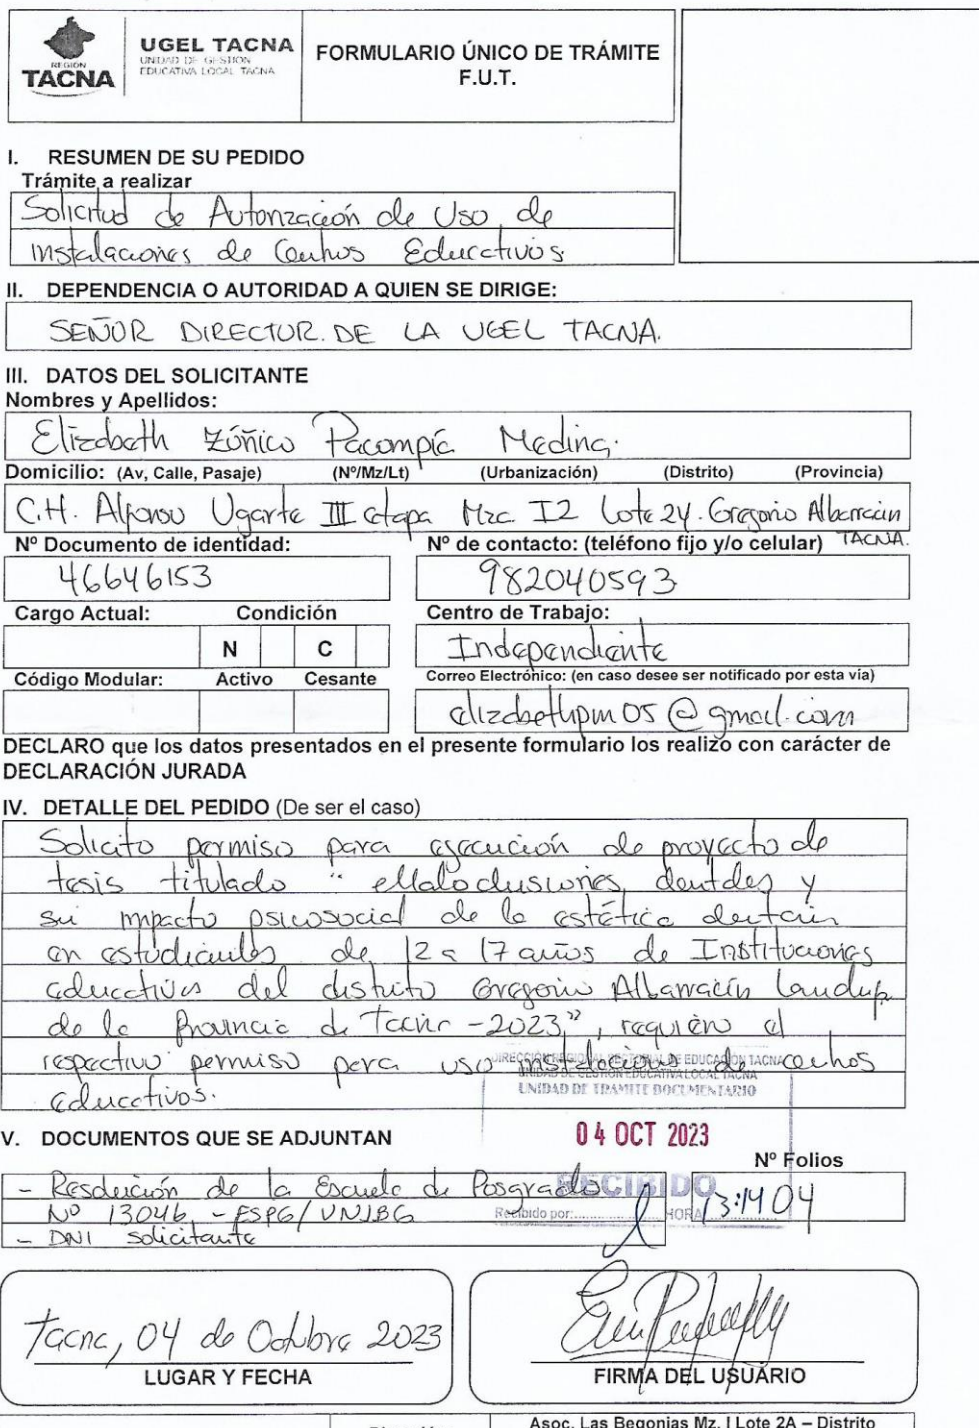 REGION
TACNA
UGEL TACNA
UNIDAD DE GESTION
EDUCATIVA LOCAL TACNA
FORMULARIO ÚNICO DE TRÁMITE
F.U.T.
I. RESUMEN DE SU PEDIDO
Trámite a realizar
Solicitud de Autorización de Uso de
instalaciones de Centros Educativos
II. DEPENDENCIA O AUTORIDAD A QUIEN SE DIRIGE:
SEÑOR DIRECTOR DE LA UGEL TACNA.
III. DATOS DEL SOLICITANTE
Nombres y Apellidos:
Elizabeth Zúñico Pacompía Medina
Domicilio: (Av, Calle, Pasaje) (Nº/Mz/Lt) (Urbanización) (Distrito) (Provincia)
C.H. Alfonso Ugarte III etapa Mza. I2 Lote 24. Gregorio Albarracín
TACNA.
Nº Documento de identidad: Nº de contacto: (teléfono fijo y/o celular)
46646153 982040593
Cargo Actual: Condición Centro de Trabajo:
N C Independiente
Código Modular: Activo Cesante Correo Electrónico: (en caso desee ser notificado por esta vía)
elizabethpm05@gmail.com
DECLARO que los datos presentados en el presente formulario los realizo con carácter de
DECLARACIÓN JURADA
IV. DETALLE DEL PEDIDO (De ser el caso)
Solicito permiso para ejecución de proyecto de
tesis titulado " Maloclusiones dentales y
su impacto psicosocial de la estética dental
en estudiantes de 12 a 17 años de Instituciones
educativas del distrito Gregorio Albarracín Lanchip.
de la Provincia de Tacna -2023", requiero el
respectivo permiso para uso instalaciones de centros
educativos.
DIRECCIÓN REGIONAL SECTORIAL DE EDUCACIÓN TACNA
UNIDAD DE GESTIÓN EDUCATIVA LOCAL TACNA
UNIDAD DE TRAMITE DOCUMENTARIO
04 OCT 2023
RECIBIDO
Recibido por: HORA 13:14
V. DOCUMENTOS QUE SE ADJUNTAN
Nº Folios
- Resolución de la Escuela de Posgrado 04
Nº 13046 - ESPG/UNJBG
- DNI solicitante
Tacna, 04 de Octubre 2023
LUGAR Y FECHA
FIRMA DEL USUARIO
Asoc. Las Begonias Mz. I Lote 2A – Distrito